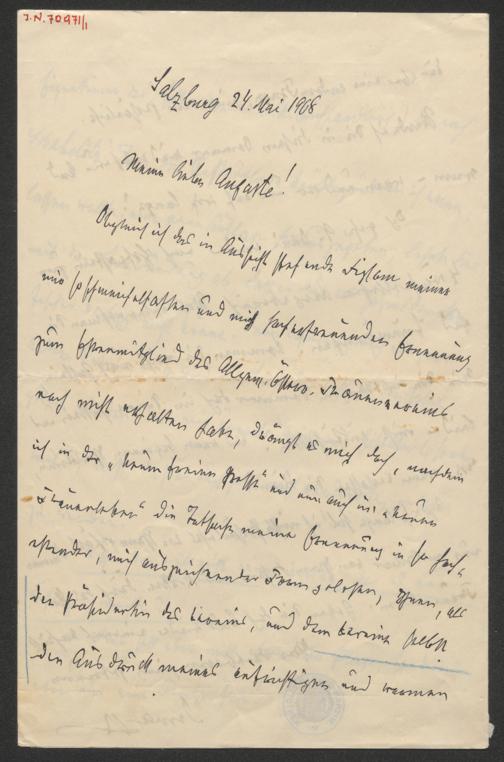 J.N. 70971/1
Salzburg 24. Mai 1908
Meine liebe Auguste!
Obgleich ich das in Aussicht stehende Diplom meiner
mir so schmeichelhaften und mich hocherfreuenden Ernennung
zum Ehrenmitglied des Allgem. österr. Frauenvereins
noch nicht erhalten habe, drängt es mich doch, nachdem
ich in der „Neuen freien Presse" und nun auch im „Neuen
Frauenleben" die Tatsache meiner Ernennung in so
mich auszeichnender Form gelesen, Ihnen, als
der Präsidentin des Vereins, und dem Vereine selbst
den Ausdruck meines aufrichtigen und warmen